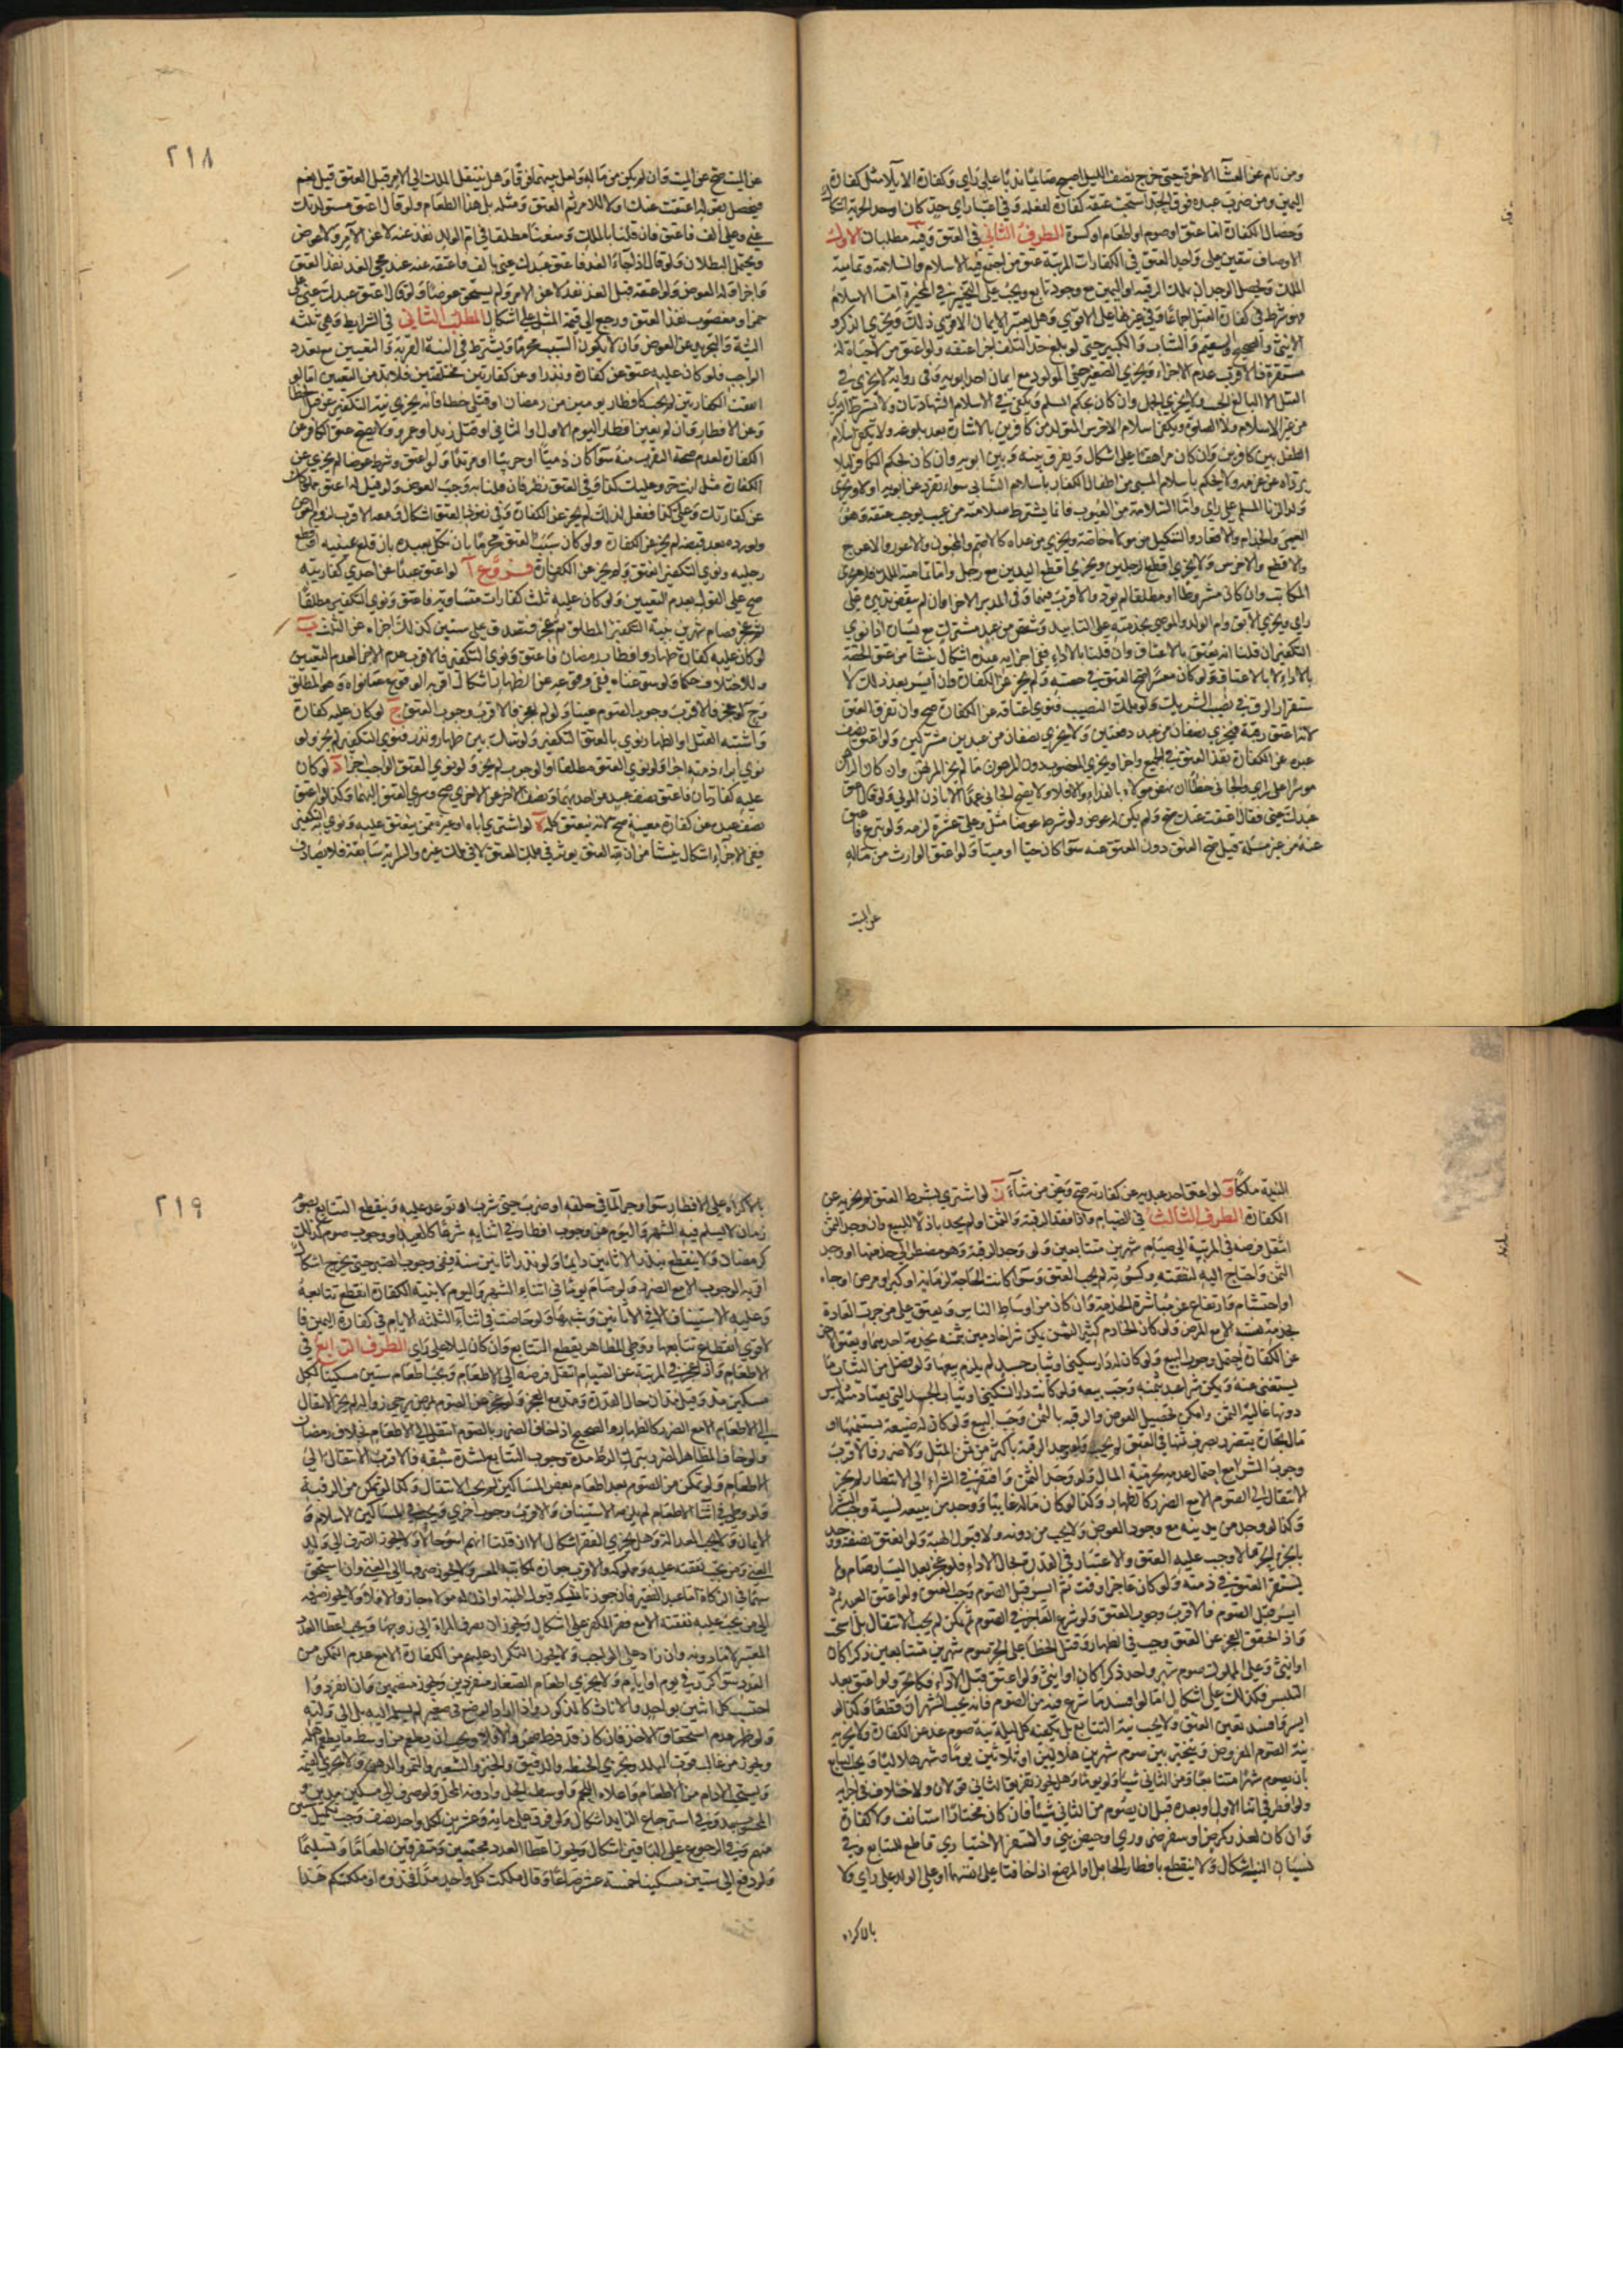 ومن نام عن العشآ الاخرة حتى خرج نصف الليل اصبح صايما ندبا على راى وكفارة الايلا مثل كفارة
اليمين ومن ضرب عبده فوق الحد استحب عتقه كفارة لفعله وفى اعتبار اى حد كان او حد الحرية اشكال
وخصال الكفارة اما عتق او صوم او اطعام او كسوة الطرف الثانى فى العتق وفيه مطلبان الاول
الاوصاف يتعين على واجد العتق فى الكفارات المرتبة عتق من اجتمع فيه الاسلام والسلامة وتمامية
الملك ويحصل الوجدان بملك الرقبة او الثمن مع وجود بايع ويجب على التخيير فى المخيرة اما الاسلام
فهو شرط فى كفارة القتل اجماعا وفى غيرها على الاقوى وهل يعتبر الايمان الاقوى ذلك ويجزى الذكر و
الانثى والصحيح والسقيم والشاب والكبير حتى لو بلغ حد التلف اجزا عتقه ولو اعتق من لا حياة له
مستقرة فالاقرب عدم الاجزاء ويجزى الصغير حتى المولود مع ايمان احد ابويه وفى رواية لا يجزى فى
القتل الا البالغ الحنث ولا يجزى الحمل وان كان بحكم المسلم ويكفى فى الاسلام الشهادتان ولا يشترط التبرى
من غير الاسلام ولا الصلوة ويكفى اسلام الاخرس المتولد من كافرين بالاشارة بعد بلوغه ولا يكفى اسلام
الطفل بين كافرين وان كان مراهقا على اشكال ويفرق بينه وبين ابويه وان كان بحكم الكافر ليلا
يرداه عن عزمه ولا يحكم باسلام المسبى من اطفال الكفار باسلام السابى سواء تفرد عن ابويه او لا ويجزى
ولد الزنا المسلم على راى واما السلامة من العيوب فانما يشترط سلامته من عيب يوجب عتقه وهو
العمى والجذام والاقعاد والتنكيل من مولاه خاصة ويجزى من عداه كالاصم والمجنون والاعور والاعرج
والاقطع والاخرس ولا يجزى اقطع الرجلين ويجزى اقطع اليدين مع رجل واما تمامية الملك فلا يجزى
المكاتب وان كانت مشروطة او مطلقا لم يؤد والاقرب فيهما وفى المدبر الاجزا وان لم ينقض تدبيره على
راى ويجزى الآبق وام الولد والموصى بخدمته على التابيد وشقص من عبد مشترك مع يسار اذا نوى
التكفير ان قلنا انه ينعتق بالاعتاق وان قلنا بالاداء ففى اجزايه عنده اشكال ينشا من عتق الحصة
بالاداء لا بالاعتاق ولو كان معسرا صح العتق فى حصته ولم يجز عن الكفارة وان ايسر بعد ذلك لا
ستقرار الرق فى نصيب الشريك ولو ملك النصيب فنوى اعتاقه عن الكفارة صح وان تفرق العتق
لانه اعتق رقبة فيجزى نصفان من عبد دفعتين ولا يجزى نصفان من عبدين مشتركين ولو اعتق نصف
عبده عن الكفارة نفذ العتق فى الجميع واجزا ويجزى المغصوب دون المرهون ما لم يجز المرتهن وان كان الراهن
موسرا على راى والجانى خطا ان نهض مولاه بالفداء والا فلا ولا يصح الجانى عمدا الا باذن الولى ولو قال اعتق
عبدك عنى فقال اعتقت عنك صح ولم يكن له عوض ولو شرط عوضا مثل وعلى عشرة لزمه ولو تبرع فاعتق
عنه من غير مسئلة قيل صح العتق دون المعتق عنه سوا كان حيا او ميتا ولو اعتق الوارث من ماله
عن الميت
٢١٨
عن الميت صح عن الميت وان لم يكن من ماله ولعل بينهما فرقا وهل ينتقل الملك الى الامر قبل العتق قيل نعم
فيحصل بقوله اعتقت عنك اولا للامر ثم العتق ومثله كل هذا الطعام ولو قال اعتق مستولدتك
عنى وعلى الف فاعتق فان قلنا بالملك ومنعناه مطلقا فى ام الولد نفذ عنه لا عن الامر ولا عوض
ويحتمل البطلان ولو قال اذا جاء الغد فاعتق عبدك عنى بالف فاعتقه عنه عند مجى الغد نفذ العتق
واجزا وله العوض ولو اعتقه قبل الغد نفذ لا عن الامر ولم يستحق عوضا ولو قال اعتق عبدك عنى على
خمر او مغصوب نفذ العتق ورجع الى قيمة المثل على اشكال المطلب الثانى فى الشرايط وهى ثلثه
النية والتجريد عن العوض وان لا يكون السبب محرما ويشترط فى النية القربة والتعيين مع تعدد
الواجب فلو كان عليه عتق عن كفارة ونذر او عن كفارتين مختلفتين فلا بد من التعيين اما لو
اتفقت الكفارتين لم يجب كافطار يومين من رمضان او قتلى خطا فانه يجزى نية التكفير عن قتل الخطا
وعن الافطار وان لم يعين افطار اليوم الاول او الثانى او قتل زيد او عمرو ولا يصح عتق الكافر عن
الكفارة لعدم صحة التقرب منه سوا كان ذميا او حربيا او مرتدا ولو اعتق وشرط عوضا لم يجزى عن
الكفارة مثل انت حر وعليك كذا وفى العتق نظر فان قلنا به وجب العوض ولو قيل له اعتق مملوكك
عن كفارتك وعلى كذا ففعل لذلك لم يجز عن الكفارة وفى نفوذ العتق اشكال ومعه الاقرب لزوم العوض
ولو رده بعد قبضه لم يجز عن الكفارة ولو كان سبب العتق محرما بان نكل بعبده بان قلع عينيه او قطع
رجليه ونوى التكفير انعتق ولم يجز عن الكفارة فروع آ لو اعتق عبدا عن احدى كفارتيه
صح على القول بعدم التعيين ولو كان عليه ثلث كفارات متساوية فاعتق ونوى التكفير مطلقا
ثم عجز فصام شهرين بنية التكفير المطلق ثم عجز فتصدق على ستين كذلك اجزاه عن الثلث ب
لو كان عليه كفارة ظهار وافطار رمضان فاعتق ونوى التكفير فالاقرب عدم الاجزا لعدم التعيين
وللاختلاف حكما ولو سوغناه ففى وقوعه عن الظهار اشكال اقربه الوقوع
لو عجز فالاقرب وجوب الصوم عينا ولو لم يعجز فالاقرب وجوب العتق ج لو كان عليه كفارة
واشتبه القتل او الظهار نوى بالعتق التكفير ولو شك بين ظهار ونذر فنوى التكفير لم يجز ولو
نوى ابراء ذمته اجزا ولو نوى العتق مطلقا او الوجوب لم يجز ولو نوى العتق الواجب اجزا د لو كان
عليه كفارتان فاعتق نصف عبد عن احديهما ونصف الاخر عن الاخرى صح وسرى العتق اليهما وكذا لو اعتق
نصف عبده عن كفارة معينة صح لانه ينعتق كله ه لو اشترى اباه او غيره ممن ينعتق عليه ونوى به التكفير
ففى الاجزاء اشكال ينشا من ان نية العتق يوثر فى ملك المعتق لا فى ملك غيره والسراية سابقة فلا يصادف
النية ملكا و لو اعتق احد عبديه عن كفارته صح وعين من شاء ز لو اشترى بشرط العتق لم يجزيه عن
الكفارة الطرف الثالث فى الصيام واذا فقد الرقبة والثمن او لم يجد باذلا للبيع وان وجد الثمن
انتقل فرضه فى المرتبة الى صيام شهرين متتابعين ولو وجد الرقبة وهو مضطر الى خدمتها او وجد
الثمن واحتاج اليه لنفقته وكسوته لم يجب العتق وسوا كانت الحاجة لزمانة او كبر او مرض او جاه
او احتشام وارتفاع عن مباشرة الخدمة وان كان من اوساط الناس ويعتق على من جرت العادة
بخدمة نفسه الا مع المرض ولو كان الخادم كثير الثمن يمكن شرا خادمين بثمنه يخدمه احدهما ويعتق الاخر
عن الكفارة احتمل وجوب البيع ولو كان له دار سكنى او ثياب جسد لم يلزم بيعها ولو فضل من الثياب ما
يستغنى عنه ويمكن شرا عبد بثمنه وجب بيعه ولو كانت دار السكنى او ثياب الجسد التى يعتاد مثله لبس
دونها غالية الثمن وامكن تحصيل العوض والرقبة بالثمن وجب البيع ولو كان له ضيعة يستنميها او
مال تجارة يتضرر بصرف ثمنها فى العتق لم يجب ولو وجد الرقبة باكثر من ثمن المثل ولا ضرر فالاقرب
وجوب الشرا مع احتمال عدمه لحرمة المال ولو وجد الثمن وافتقر فى الشراء الى الانتظار لم يجز
الانتقال الى الصوم الا مع الضرر كالظهار وكذا لو كان ماله غايبا ووجد من يبيعه نسية وجب الشرا
وكذا لو وجد من يدينه مع وجود العوض ولا يجب من دونه ولا قبول الهبة ولو انعتق نصفه ووجد
بالجزء الحر مالا وجب عليه العتق والاعتبار فى القدرة بحال الاداء فلو عجز بعد اليسار صام ولم
يستقر العتق فى ذمته ولو كان عاجزا وقت ثم ايسر قبل الصوم وجب العتق ولو اعتق العبد ثم
ايسر قبل الصوم فالاقرب وجوب العتق ولو شرع العاجز فى الصوم ثم تمكن لم يجب الانتقال بل استحب
واذا تحقق العجز عن العتق وجب فى الظهار وقتل الخطا على الحر صوم شهرين متتابعين ذكرا كان
او انثى وعلى المملوك صوم شهر واحد ذكرا كان او انثى ولو اعتق قبل الاداء فكالحر ولو اعتق بعد
التلبس فكذلك على اشكال اما لو افسد ما شرع فيه من الصوم فانه يجب الشهران قطعا وكذا لو
ايسر وافسد تعين العتق ولا يجب نية التتابع بل يكفيه كل ليلة نية صوم غد عن الكفارة ولا يجزيه
نية الصوم المفروض ويتخير بين صوم شهرين هلاليين او ثلاثين يوما وشهر هلاليا ويجب التتابع
بان يصوم شهرا متتابعا ومن الثانى شيئا ولو يوما وهل يجوز تفريق الثانى قولان ولا خلاف فى اجزايه
ولو افطر فى اثناء الاول او بعده قبل ان يصوم من الثانى شيئا فان كان مختارا استانف ولا كفارة
وان كان لعذر كمرض او سفر ضرورى او حيض بنى والسفر الاختيارى قاطع للتتابع وفى
نسيان النية اشكال ولا ينقطع بافطار الحامل او المرضع اذا خافتا على انفسهما او على الولد على راى ولا
بالاكراه
٢١٩
بالاكراه على الافطار سوا وجر الما فى حلقه او ضرب حتى شرب او توعد عليه وينقطع التتابع بصوم
زمان لا يسلم فيه الشهر واليوم عن وجوب افطار فى اثنايه شرعا كالعيد او وجوب صوم كذلك
كرمضان ولا ينقطع بنذر الاثانين دايما ولو نذر اثانين سنة ففى وجوب الصبر حتى يخرج اشكال
اقربه الوجوب الا مع الضرر ولو صام يوما فى اثناء الشهر واليوم لا بنية الكفارة انقطع تتابعه
وعليه الاستيناف الا فى الاثانين وشبهها ولو حاضت فى اثناء الثلثة الايام فى كفارة اليمين فا
لاقوى انقطاع تتابعها ووطى المظاهر يقطع التتابع وان كان ليلا على راى الطرف الرابع فى
الاطعام واذا عجز فى المرتبة عن الصيام انتقل فرضه الى الاطعام ويجب اطعام ستين مسكينا لكل
مسكين مد وقيل مدان حال القدرة ومد مع العجز ولو عجز عن الصوم بمرض يرجى زواله لم يجز الانتقال
الى الاطعام الا مع الضرر كالظهار والصحيح اذ اخاف الضرر بالصوم انتقل الى الاطعام بخلاف رمضان
ولو خاف المظاهر الضرر بترك الوطى مدة وجوب التتابع لشدة شبقه فالاقرب الانتقال الى
الاطعام ولو تمكن من الصوم بعد اطعام بعض المساكين لم يجب الانتقال وكذا لو تمكن من الرقبة
ولو وطى فى اثناء الاطعام لم يلزمه الاستيناف والاقرب وجوب اخرى ويجب فى المساكين الاسلام و
الايمان ولا يجب العدالة وهل يجزى الفقراء اشكال الا ان قلنا انهم اسوء حالا ولا يجوز الصرف الى ولد
الغنى ومن تجب نفقته عليه ومملوكه والاقرب جوازه لمكاتبه المعسر ولا يجوز صرفها الى الغنى وان استحق
سهما فى الزكاة اما عبد الفقير فان جوزنا تمليكه قبول الهبة او اذن له مولاه جاز والا فلا ولا يجوز صرفه
الى من يجب عليه نفقته الا مع فقر المكفر على اشكال ويجوز ان يصرف المراة الى زوجها ويجب اعطا العدد
المعتبر لا ما دونه وان زاد على الواجب ولا يجوز التكرار عليهم من الكفارة الا مع عدم التمكن من
العدد سوا كرر فى يوم او ايام ولا يجزى اطعام الصغار منفردين ويجوز منضمين وان انفردوا
احتسب كل اثنين بواحد والاناث كالذكور
ولو ظهر عدم استحقاق الاخذ
ويجوز من غالب قوت البلد ويجزى الحنطة والدقيق والخبز والشعير والتمر ولا يجزى القيمة
ويستحب الادام مع الاطعام واعلاه اللحم واوسطه الخل وادونه الملح ولو صرف الى مسكين مدين و
المحسوب مد وفى استرجاع الزايد اشكال ولو فرق على ماية وعشرين لكل واحد نصف وجب تكميل ستين
منهم وفى الرجوع على الباقين اشكال ويجوز اعطا العدد مجتمعين ومتفرقين اطعاما وتسليما
ولو دفع الى ستين مسكينا خمسة عشر صاعا وقال ملكت كل واحد مدا فخذوه او ملكتكم هذا